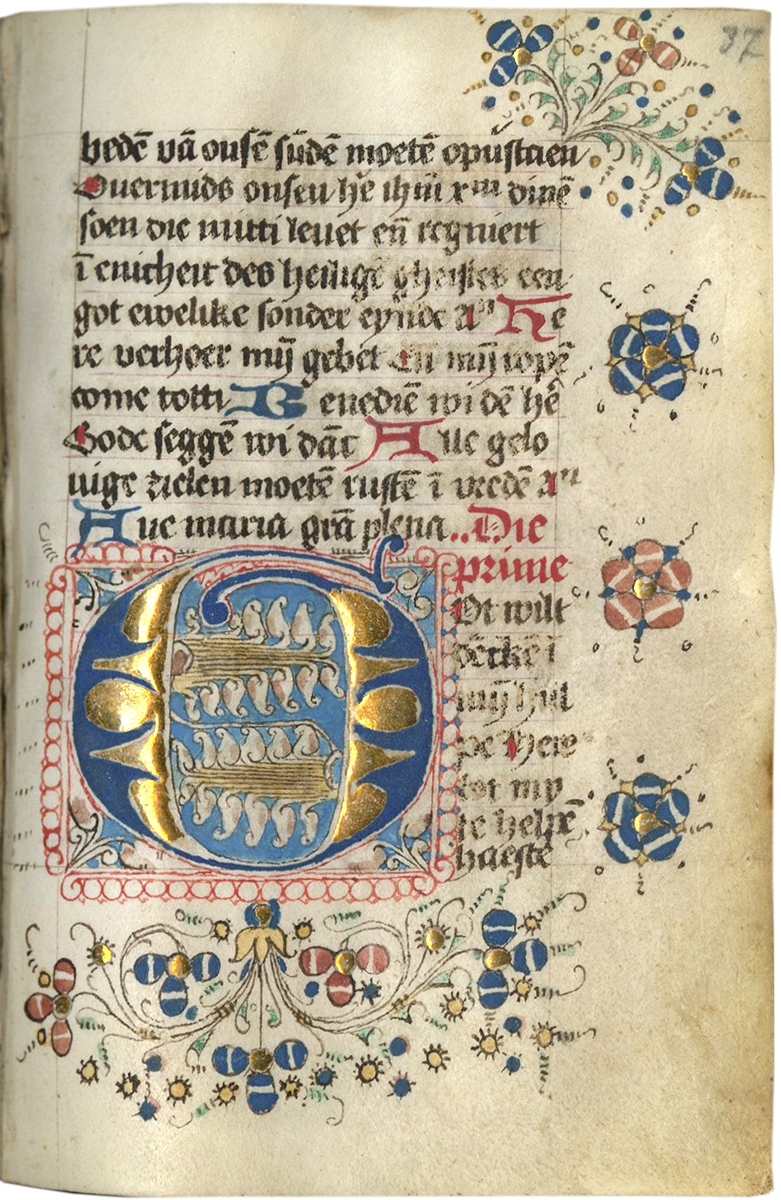 37
bedē vā onsē sūdē moetē opustaen
Ouermids onsen hē ihm xm dinē
soen die mitti leuet eñ regniert
ī enicheit des heiligē gheistes een
got ewelike sonder eynde am He
re verhoer mijn gebet en mijn ropē
come totti Benedien wi dē hē
Gode seggē wi dāc Alle gelo
uige zielen moetē rustē ī vredē am
Aue maria grā plena.. Die
prime
Got wilt
dēckē ī
mijn hul
pe Here
tot my
te helpē
haeste